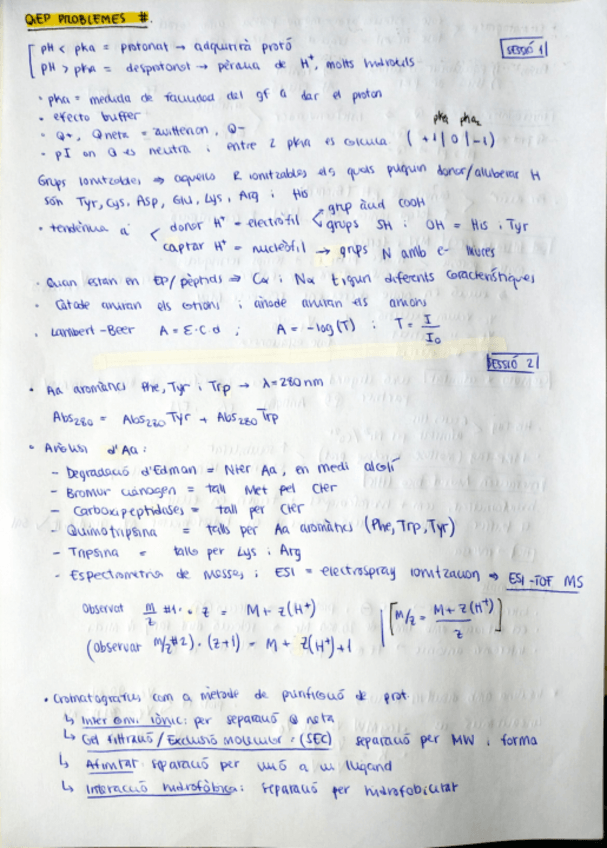 QEP PROBLEMES #.
SESSIÓ 1
pH < pka = protonat → adquirirà protó
pH > pka = desprotonat → pèrdua de H⁺, molts hidroxils
· pka = medida de facilidad del gf a dar el protón
· efecto buffer
· Q+, Qneta = zwitterion, Q-
pka₁ pka₂
· pI on Q és neutra i entre 2 pka es calcula (+1|0|-1)
Grups ionitzables ⇒ aquells R ionitzables els quals puguin donar/alliberar H
són Tyr, Cys, Asp, Glu, Lys, Arg i His
· tendència a
donar H⁺ = electròfil
grup àcid COOH
grups SH i OH = His i Tyr
captar H⁺ = nucleòfil → grups N amb e- lliures
· Quan estan en EP/pèptids ⇒ Cα i Nα tiguin diferents característiques
· Càtode aniran els cations i ànode aniran els anions
· Lambert-Beer A = ε·C·d ; A = -log(T) ; T = I/I₀
SESSIÓ 2
· Aa aromàtics Phe, Tyr i Trp → λ = 280 nm
Abs₂₈₀ = Abs₂₈₀ Tyr + Abs₂₈₀ Trp
· Anàlisi d'Aa:
- Degradació d'Edman = Nter Aa, en medi alcalí
- Bromur cianogen = tall Met pel Cter
- Carboxipeptidases = tall per Cter
- Quimotripsina = talls per Aa aromàtics (Phe, Trp, Tyr)
- Tripsina = talls per Lys i Arg
- Espectrometria de Masses i ESI = electrospray ionitzacion ⇒ ESI-TOF MS
Observat m/z #1 · z = M + z(H⁺) | [m/z = M + z(H⁺)/z]
(Observat m/z #2) · (z+1) = M + z(H⁺)+1
· Cromatografies com a mètode de purificació de prot.
↳ Intercanvi iònic: per separació Q neta
↳ Gel filtració/Exclusió molecular: (SEC) separació per MW i forma
↳ Afinitat: separació per unió a un lligand
↳ Interacció hidrofòbica: separació per hidrofobicitat